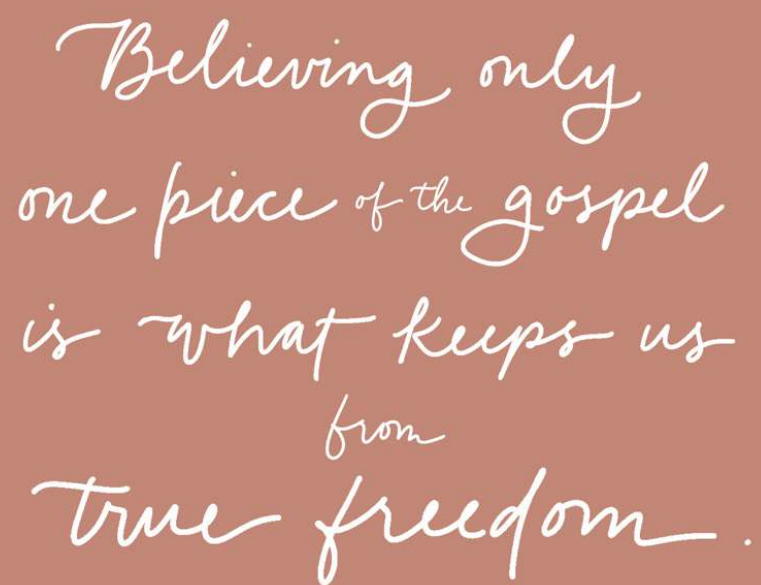 Believing only
one piece of the gospel
is what keeps us
from
true freedom.